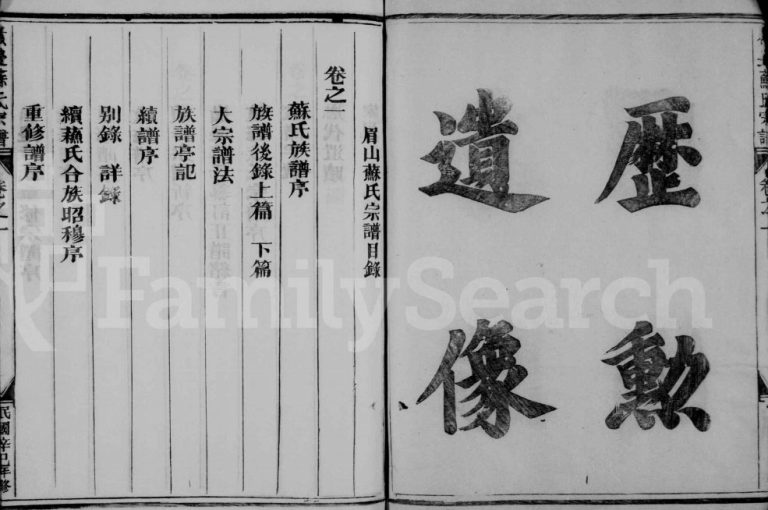 歷勳
遺像
眉山蘇氏宗譜目錄
卷之一
蘇氏族譜序
族譜後錄上篇 下篇
大宗譜法
族譜亭記
續譜序
別錄 詳錄
續蘓氏合族昭穆序
重修譜序
民國辛巳年修
FamilySearch